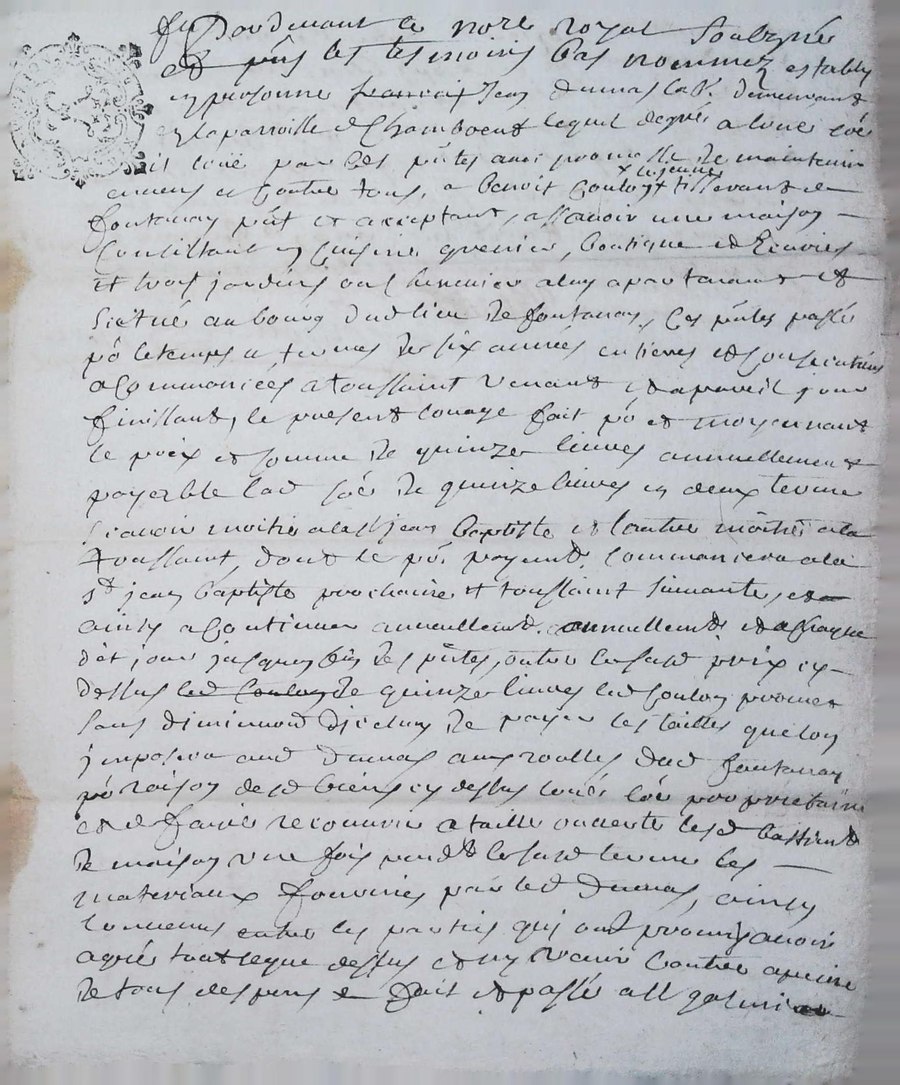 Pardevant le nore royal soubzigné
et pñs les tesmoins bas nommez estably
en personne françois Jean dumas lab. demeurant
en la parroisse de Chamboeuf lequel degré a loué côe
il loue par ces pñtes avec promesse de maintenir
envers et contre tous, a benoit Coulon + le jeune tisserant de
fontanay pñt et acceptant, assavoir une maison
Consistant en Cuisine, grenier, boutique et Ecuries
et trois jardins ou a luy apartenant et
scitué au bourg dud lieu de fontanay, Ces pñtes passé
po le temps et termes de six années entieres et consecutives
a Commancées a toussaint venant et a pareil jour
finissant, le present louage fait po et moyennant
le prix et somme de quinze livres annuellement
payable lad soe de quinze livres en deux terme
scavoir moitié a la st jean baptiste et lautre moitié a la
toussaint, dont le pr payemt. Commancera a la
st jean baptiste prochaine et toussaint suivante, et
ainsy a Continuer annuellemt. annuellemt et a chasque
dit jour jusques fin des pñtes, outre lesusd prix cy
dessus led Coulon de quinze livres led Coulon promet
sans diminuon diceluy de payer les tailles quelon
jmposera aud dumas aux rolles dud fontanay
po raison desd biens cy dessus loués côe proprietaire
et de faire recouvrir a taille ouverte lesd bastimt
de maison une fois pendt lesusd terme les
materiaux fournies par led dumas, ainsy
Convenus entre les parties quj ont promis avoir
agréé tout ceque dessus et ny venir Contre a peine
de tous despens & fait et passé a st galmier